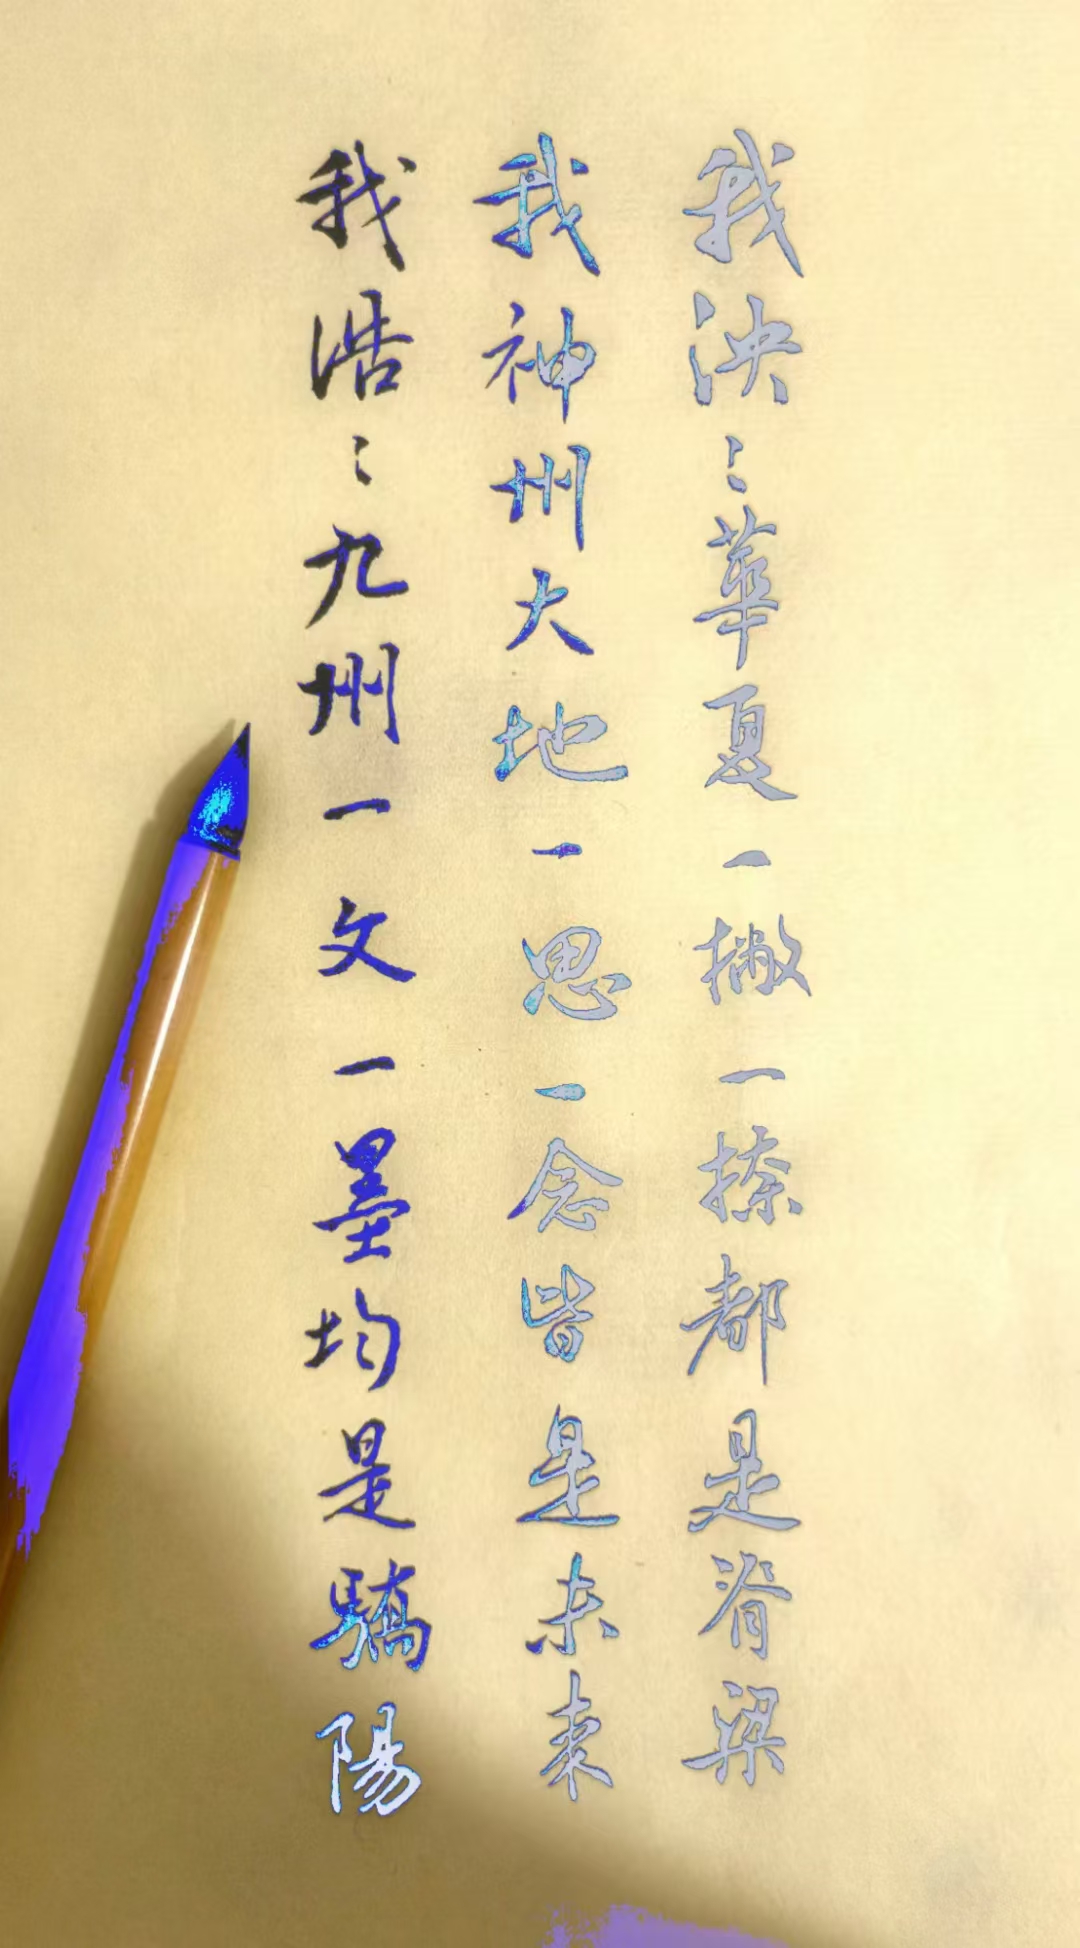 我泱〻華夏一撇一捺都是脊梁
我神州大地一思一念皆是未来
我浩〻九州一文一墨均是驕陽